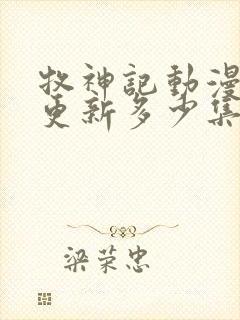 牧神記動漫
更新多少集
梁荣忠